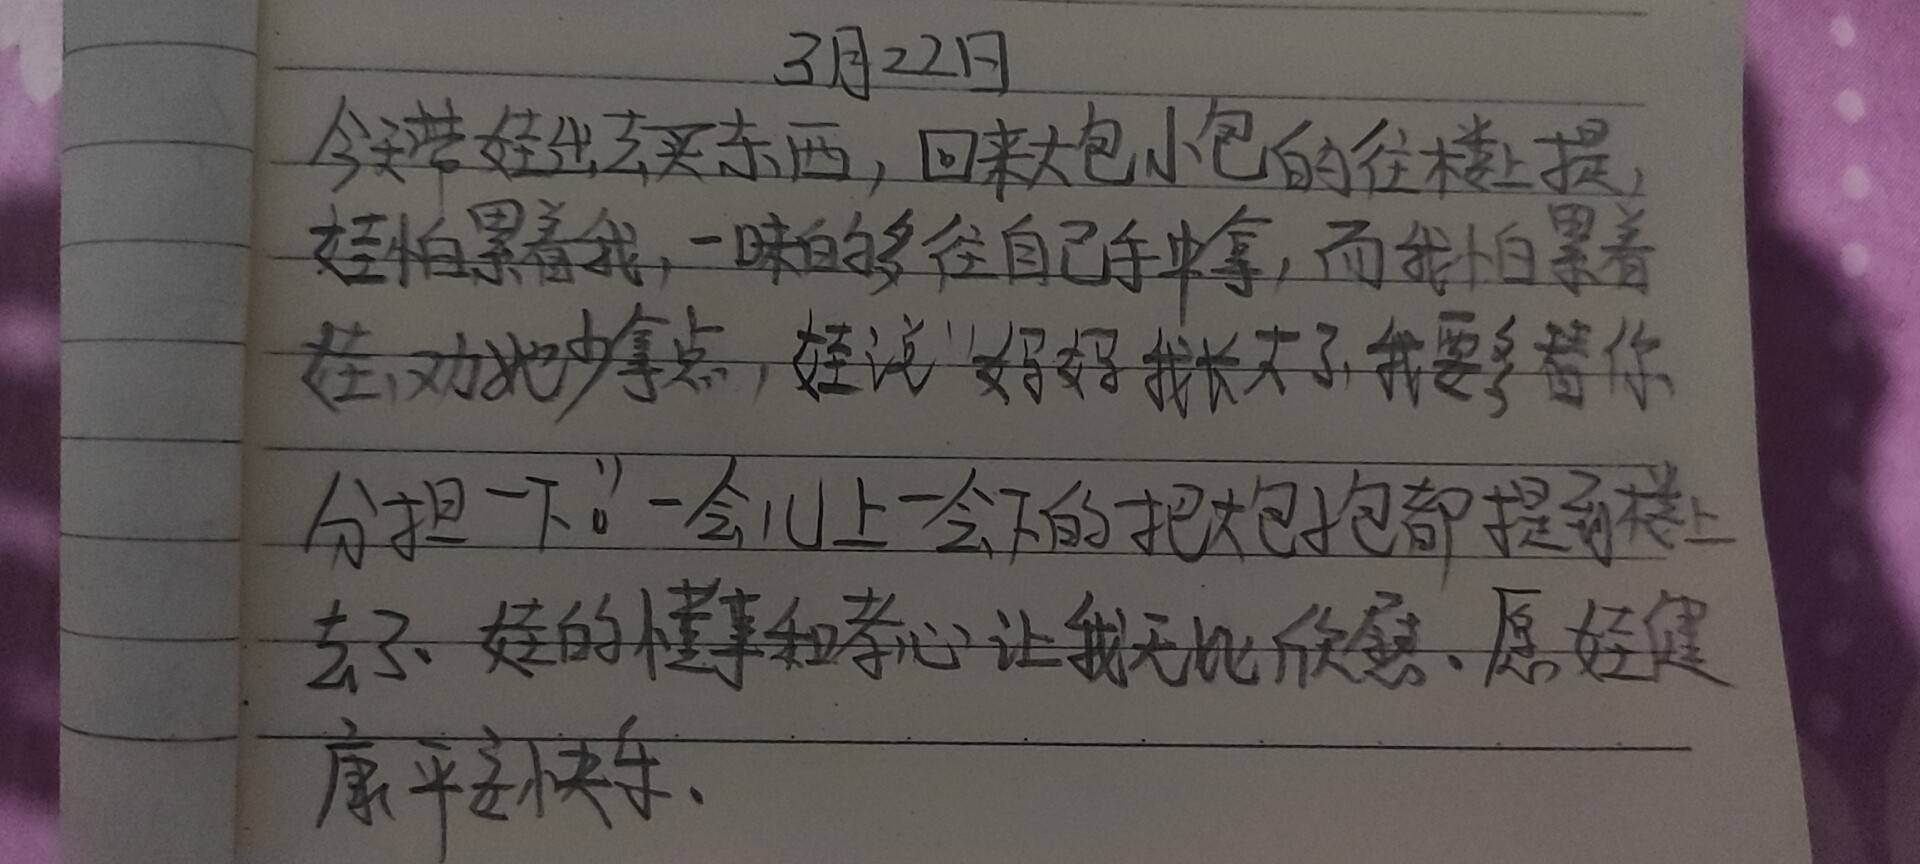 3月22日
今天带娃出去买东西，回来大包小包的往楼上提，
娃怕累着我，一味的多往自己手中拿，而我怕累着
娃，劝她少拿点，娃说"妈妈我长大了，我要多替你
分担一下。"一会儿上一会下的把大包抱都提到楼上
去了、娃的懂事和孝心让我无比欣慰、愿娃健
康平安快乐、